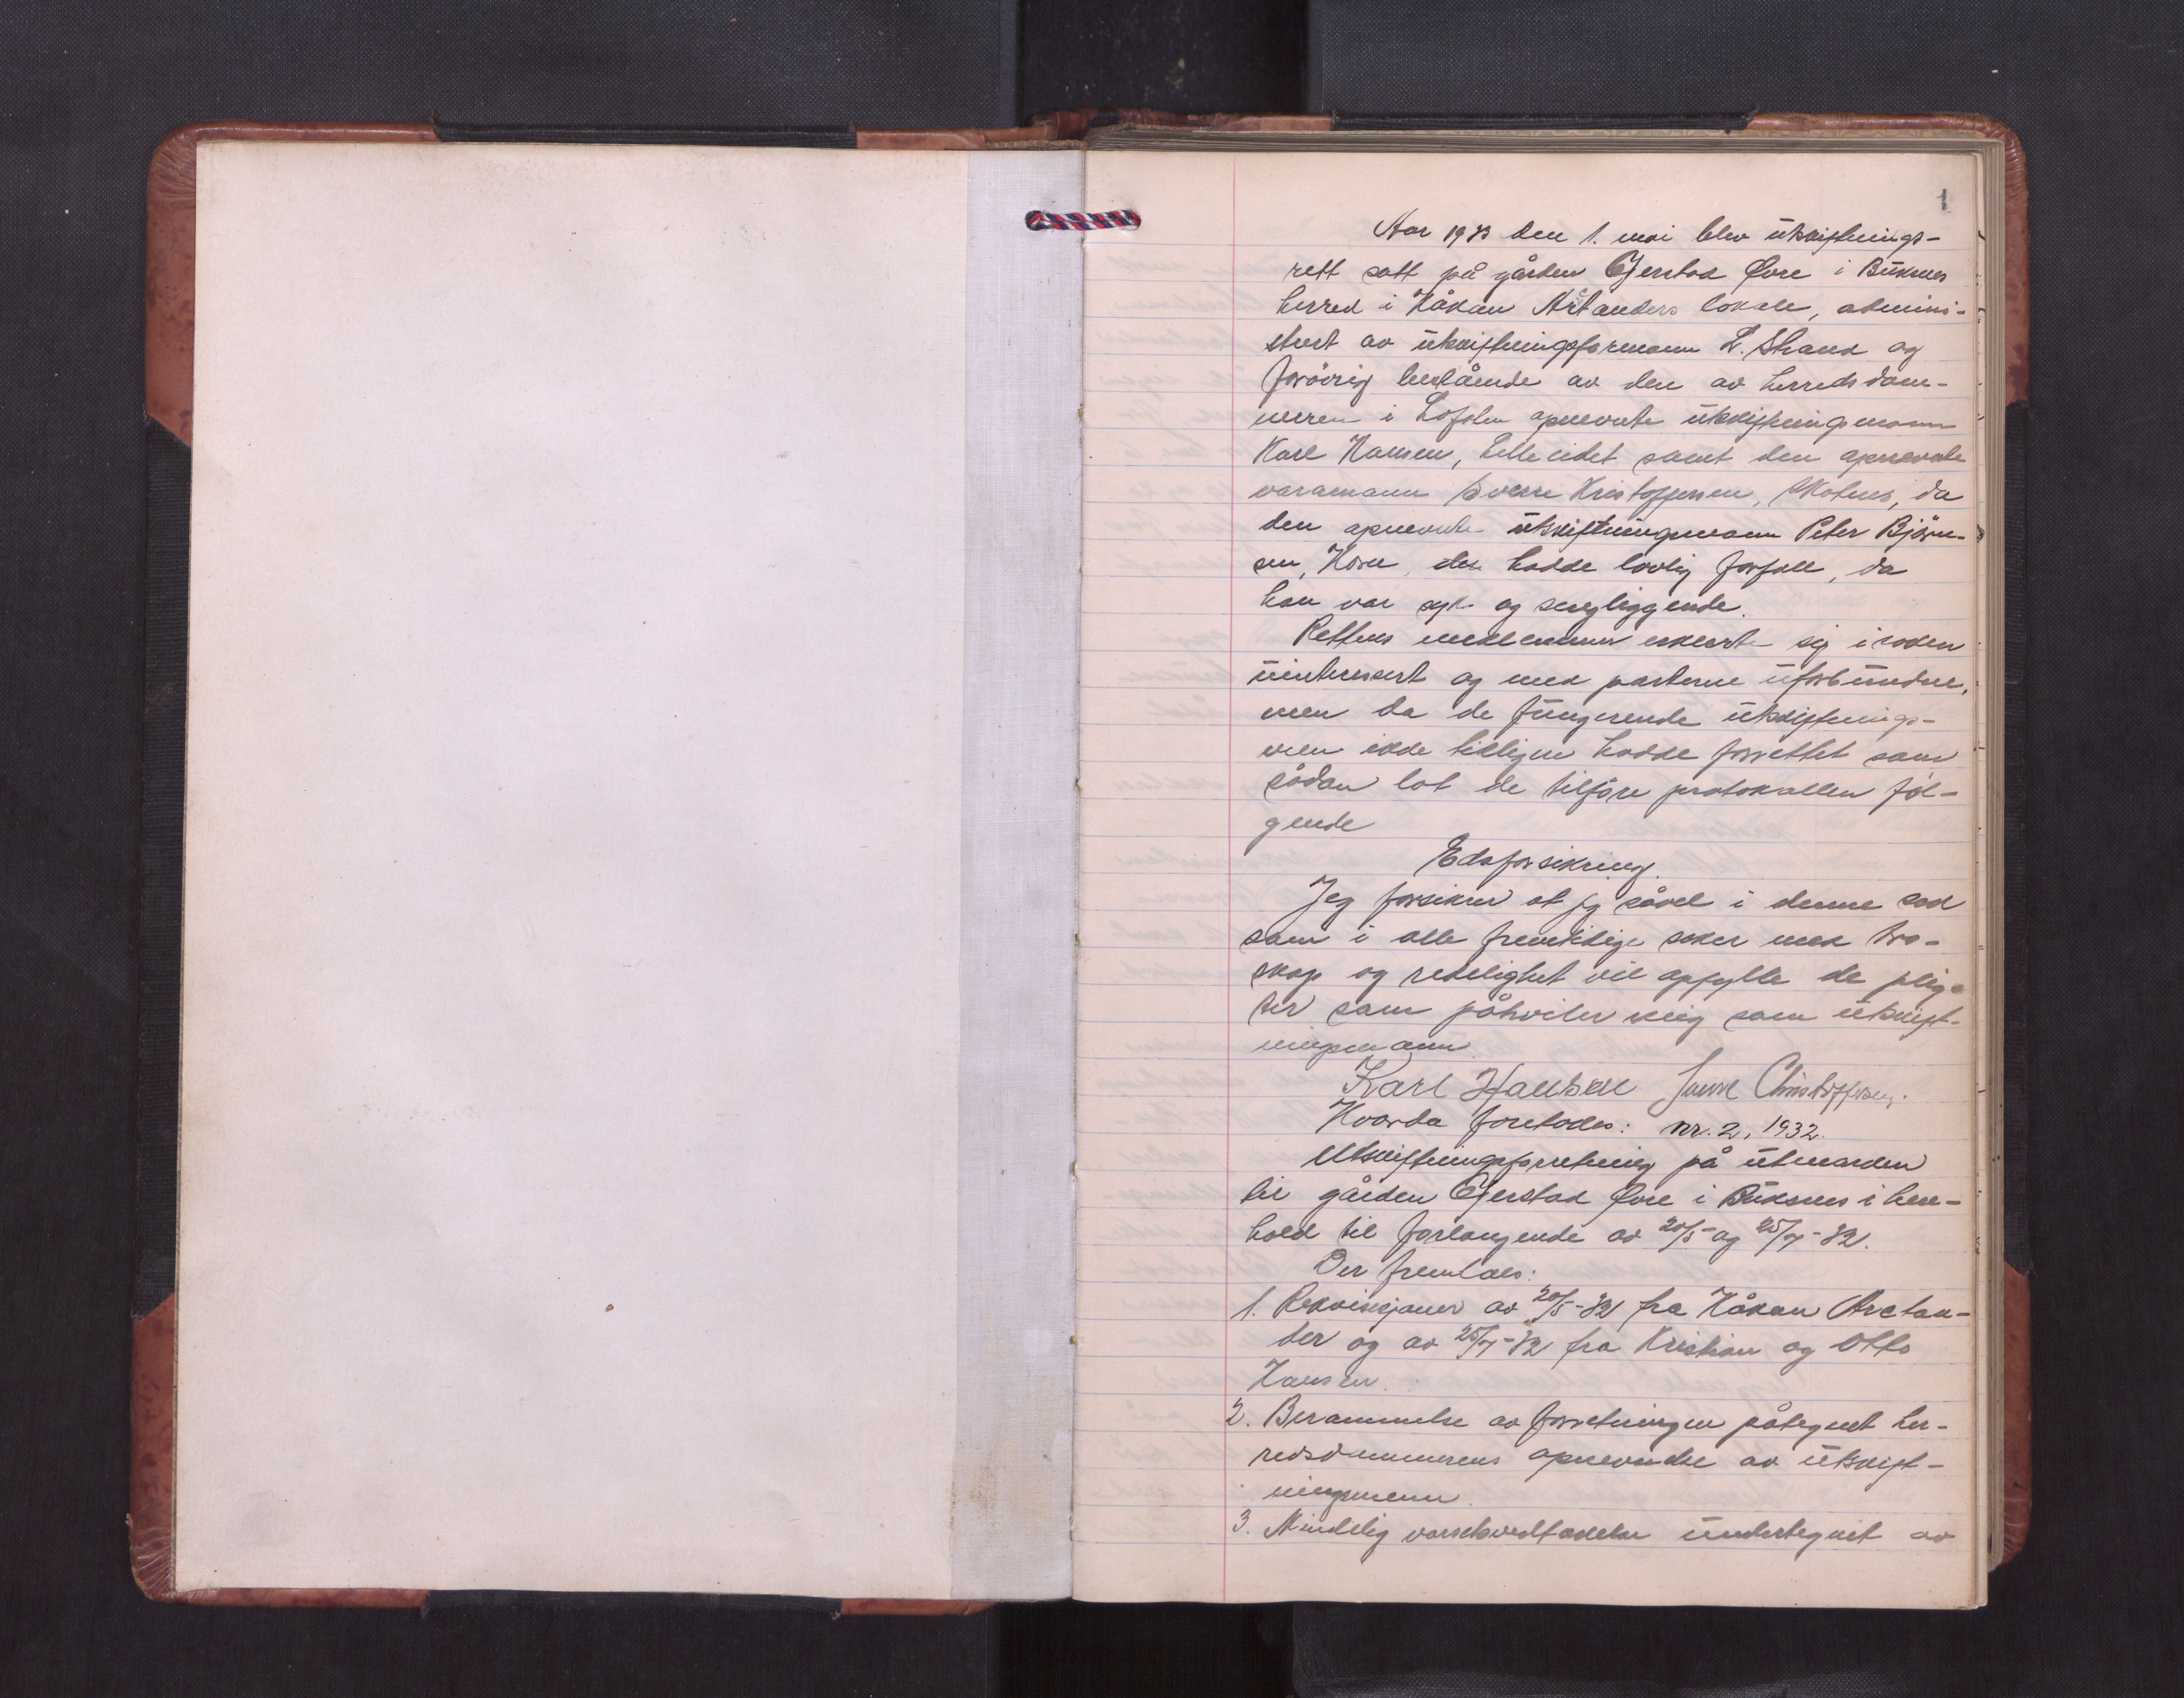 1
Aar 1933 den 1. mai blev utskiftnings-
rett satt på gården Gjerstad Øvre i Buksnes
herred i Håkan Arctanders lokale, admini-
strert av utskiftningsformann L. Strand og
forövrig bestående av den av herredsdom-
meren i Lofoten opnevnte utskiftningsmann
Karl Hansen, Lilleeidet samt den opnevnte
varamann Sverre Kristoffersen, da
den opnevnte utskiftningsmann Peter Björn-
sen, Horn, hadde lovlig forfall, da
han var syk og sengliggende.
Rettens medlemmer erklærte sig i saken
uinteressert og med partene uforbundne,
men da de fungerende utskiftnings-
menn ikke tidligere hadde forrettet som
sådan lot de tilföre protokollen föl-
gende
Edsforsikring.
Jeg forsikrer at jeg såvel i denne sak
som i alle fremtidige saker med tro-
skap og redelighet vil opfylle de plig-
ter som påhviler mig som utskift-
ningsmann
Karl Hansen Sverre Christoffersen.
Hvorda foretokes: nr. 2, 1932.
Utskiftningsforretning på utmarken
til gården Gjerstad Øvre i Buksnes i hen-
hold til forlangende av 20/5- og 25/7-32.
Der fremlaes:
1. Rekvisisjoner av 20/5-32 fra Håkan Arctan-
der og av 25/7-32 fra Kristian og Otto
Hansen.
2. Berammelse av forretningen påtegnet her-
redsdommerens opnevnelse av utskift-
ningsmenn.
3. Mindelig varselsvedtakelse undertegnet av